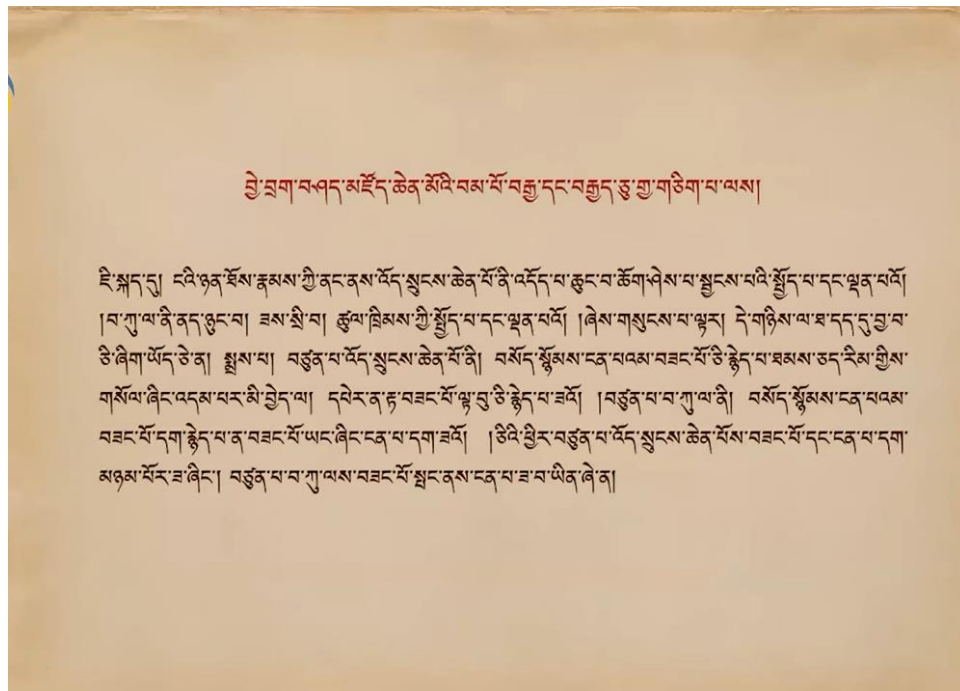 བྱེ་བྲག་བཤད་མཛོད་ཆེན་མོའི་བམ་པོ་བརྒྱ་དང་བརྒྱད་ཅུ་གྱ་གཅིག་པ་ལས།
ཇི་སྐད་དུ། ངའི་ཉན་ཐོས་རྣམས་ཀྱི་ནང་ནས་འོད་སྲུངས་ཆེན་པོ་ནི་འདོད་པ་ཆུང་བ་ཆོག་ཤེས་པ་སྦྱངས་པའི་སྤྱོད་པ་དང་ལྡན་པའོ།
།བ་ཀུ་ལ་ནི་ནད་ཉུང་བ། ཟས་སྲི་བ། ཚུལ་ཁྲིམས་ཀྱི་སྤྱོད་པ་དང་ལྡན་པའོ། །ཞེས་གསུངས་པ་ལྟར། དེ་གཉིས་ལ་ཐ་དད་དུ་བྱ་བ་
ཅི་ཞིག་ཡོད་ཅེ་ན། སྨྲས་པ། བཙུན་པ་འོད་སྲུངས་ཆེན་པོ་ནི། བསོད་སྙོམས་ངན་པའམ་བཟང་པོ་ཅི་རྙེད་པ་ཐམས་ཅད་རིམ་གྱིས་
གསོལ་ཞིང་འདམ་པར་མི་བྱེད་ལ། དཔེར་ན་རྟ་བཟང་པོ་ལྟ་བུ་ཅི་རྙེད་པ་ཟའོ། །བཙུན་པ་བ་ཀུ་ལ་ནི། བསོད་སྙོམས་ངན་པའམ་
བཟང་པོ་དག་རྙེད་པ་ན་བཟང་པོ་ཡང་ཞིང་ངན་པ་དག་ཟའོ། །ཅིའི་ཕྱིར་བཙུན་པ་འོད་སྲུངས་ཆེན་པོས་བཟང་པོ་དང་ངན་པ་དག་
མཉམ་པོར་ཟ་ཞིང་། བཙུན་པ་བ་ཀུ་ལས་བཟང་པོ་སྤང་ནས་ངན་པ་ཟ་བ་ཡིན་ཞེ་ན།